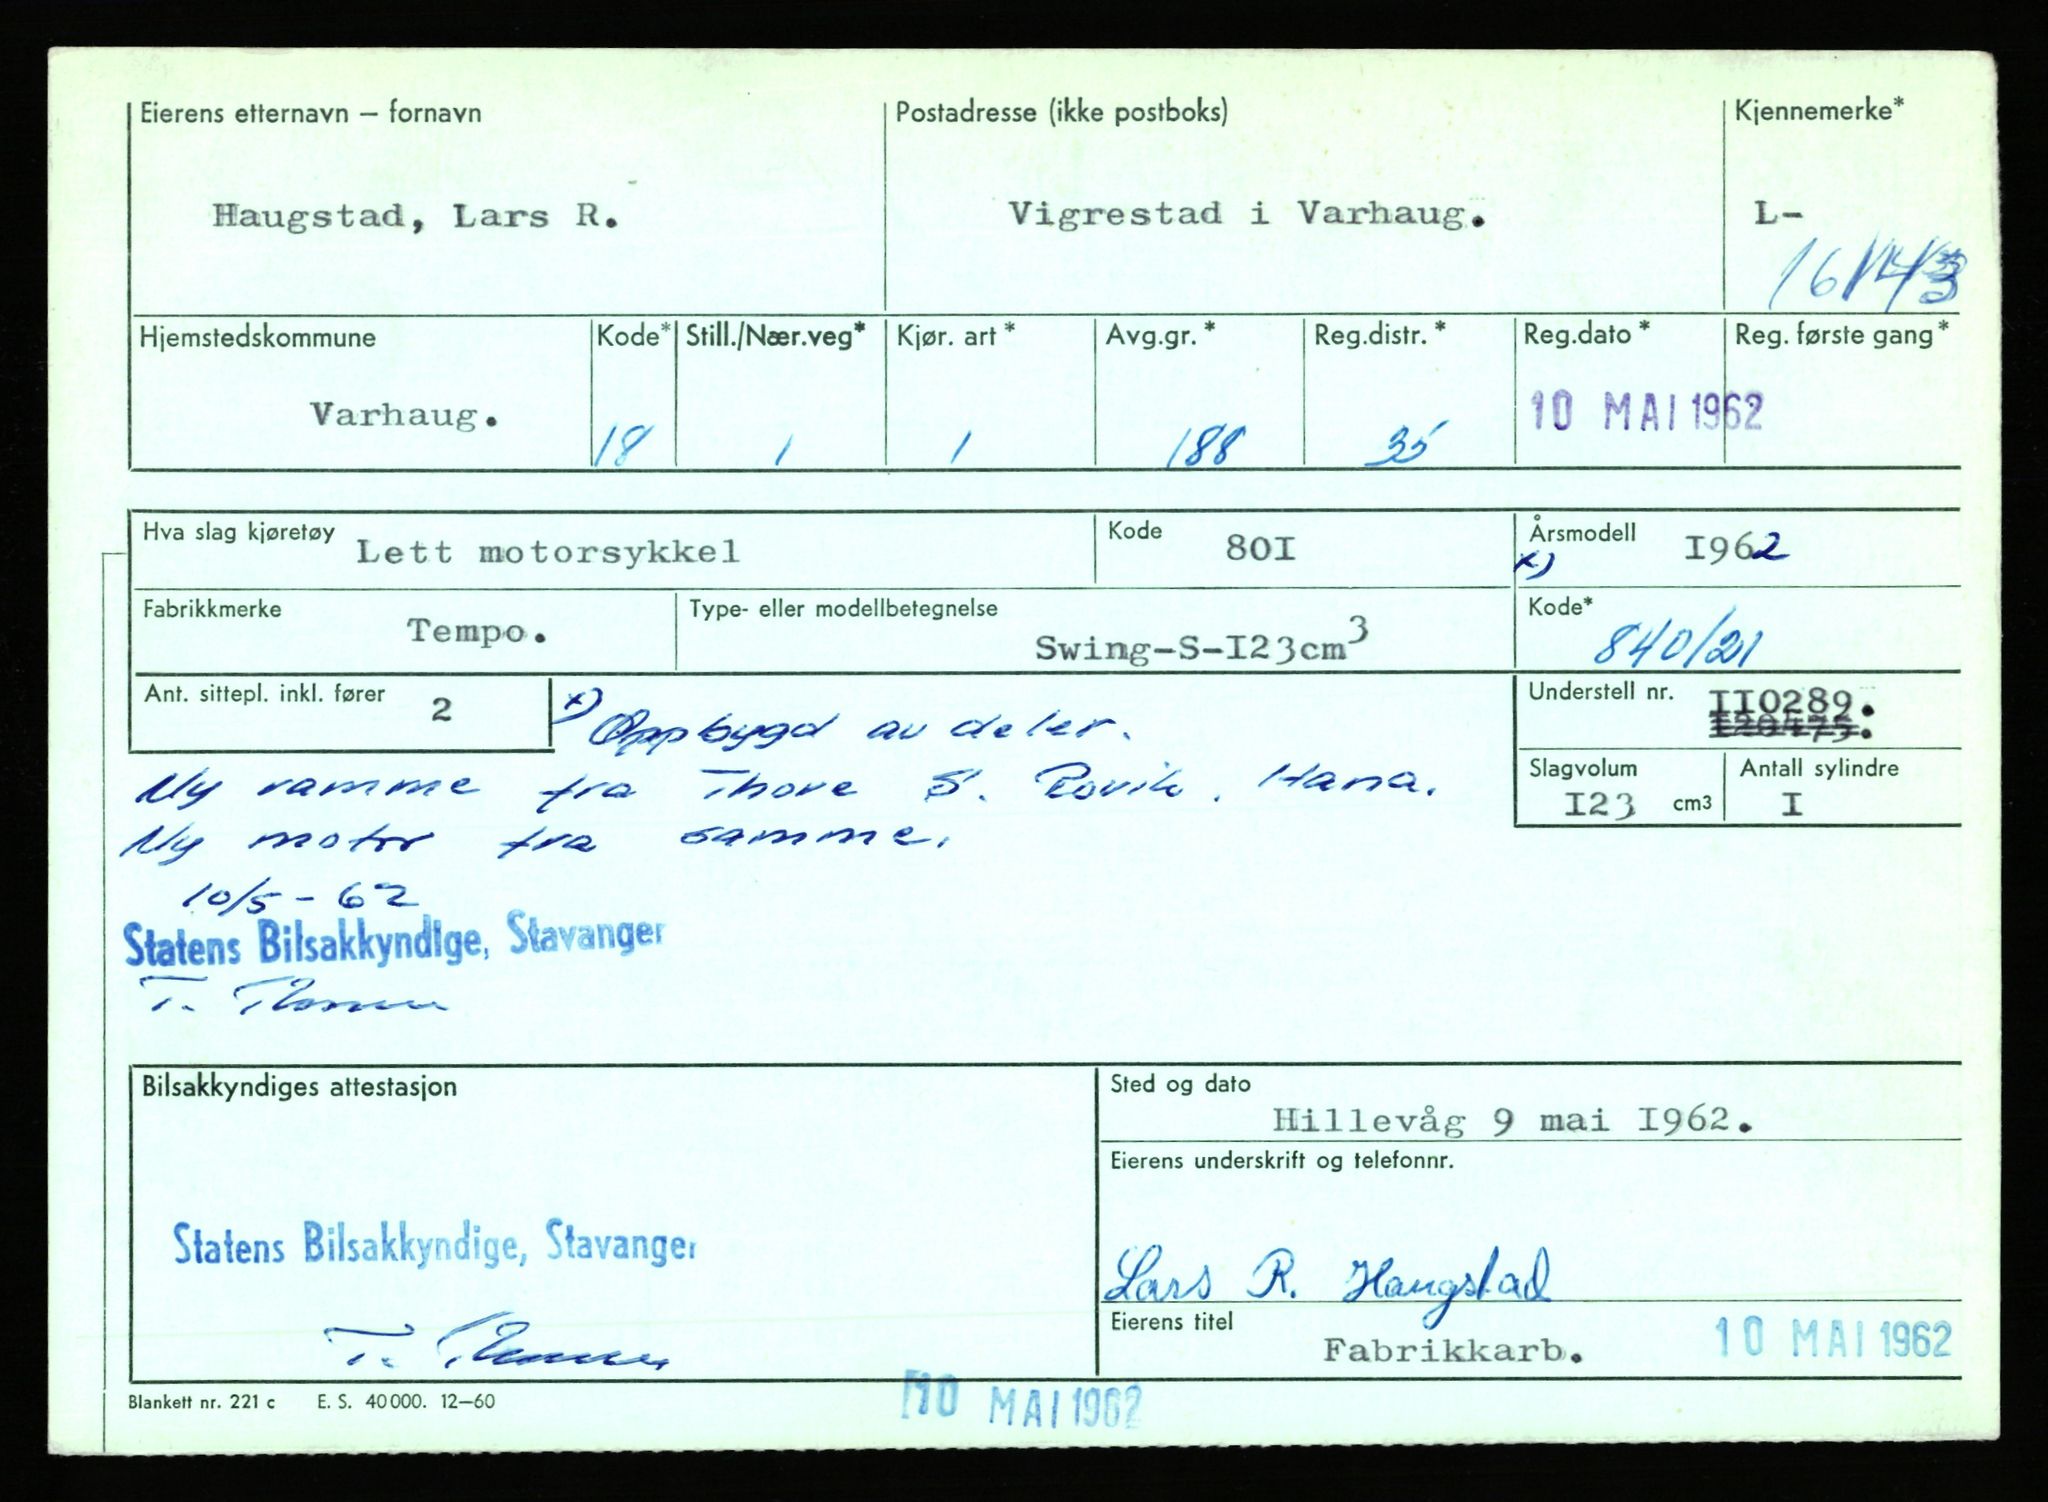 Eierens etternavn – fornavn
Postadresse (ikke postboks)
Kjennemerke*
Haugstad, Lars R.
Vigrestad i Varhaug.
L-
Hjemstedskommune
Kode*
Still./Nær.veg*
Kjør. art *
Avg.gr. *
Reg.distr. *
Reg.dato *
Reg. første gang *
Varhaug.
18
1
1
188
35
10 MAI 1962
Hva slag kjøretøy
Lett motorsykkel
Kode
80I
Årsmodell
x) I962
Fabrikkmerke
Tempo.
Type- eller modellbetegnelse
Swing-S-I23cm3
Kode*
840/21
Ant. sittepl. inkl. fører
2
x) Oppbygd av deler.
Understell nr.
II0289.
Ny ramme fra Thore S. Hana.
Slagvolum
I23 cm3
Antall sylindre
I
Ny motor fra samme.
10/5 - 62
Statens Bilsakkyndige, Stavanger
T.
Bilsakkyndiges attestasjon
Statens Bilsakkyndige, Stavanger
T.
Sted og dato
Hillevåg 9 mai I962.
Eierens underskrift og telefonnr.
Lars R. Haugstad
Eierens titel
Fabrikkarb.
10 MAI 1962
Blankett nr. 221 c E. S. 40 000. 12–60
10 MAI 1962